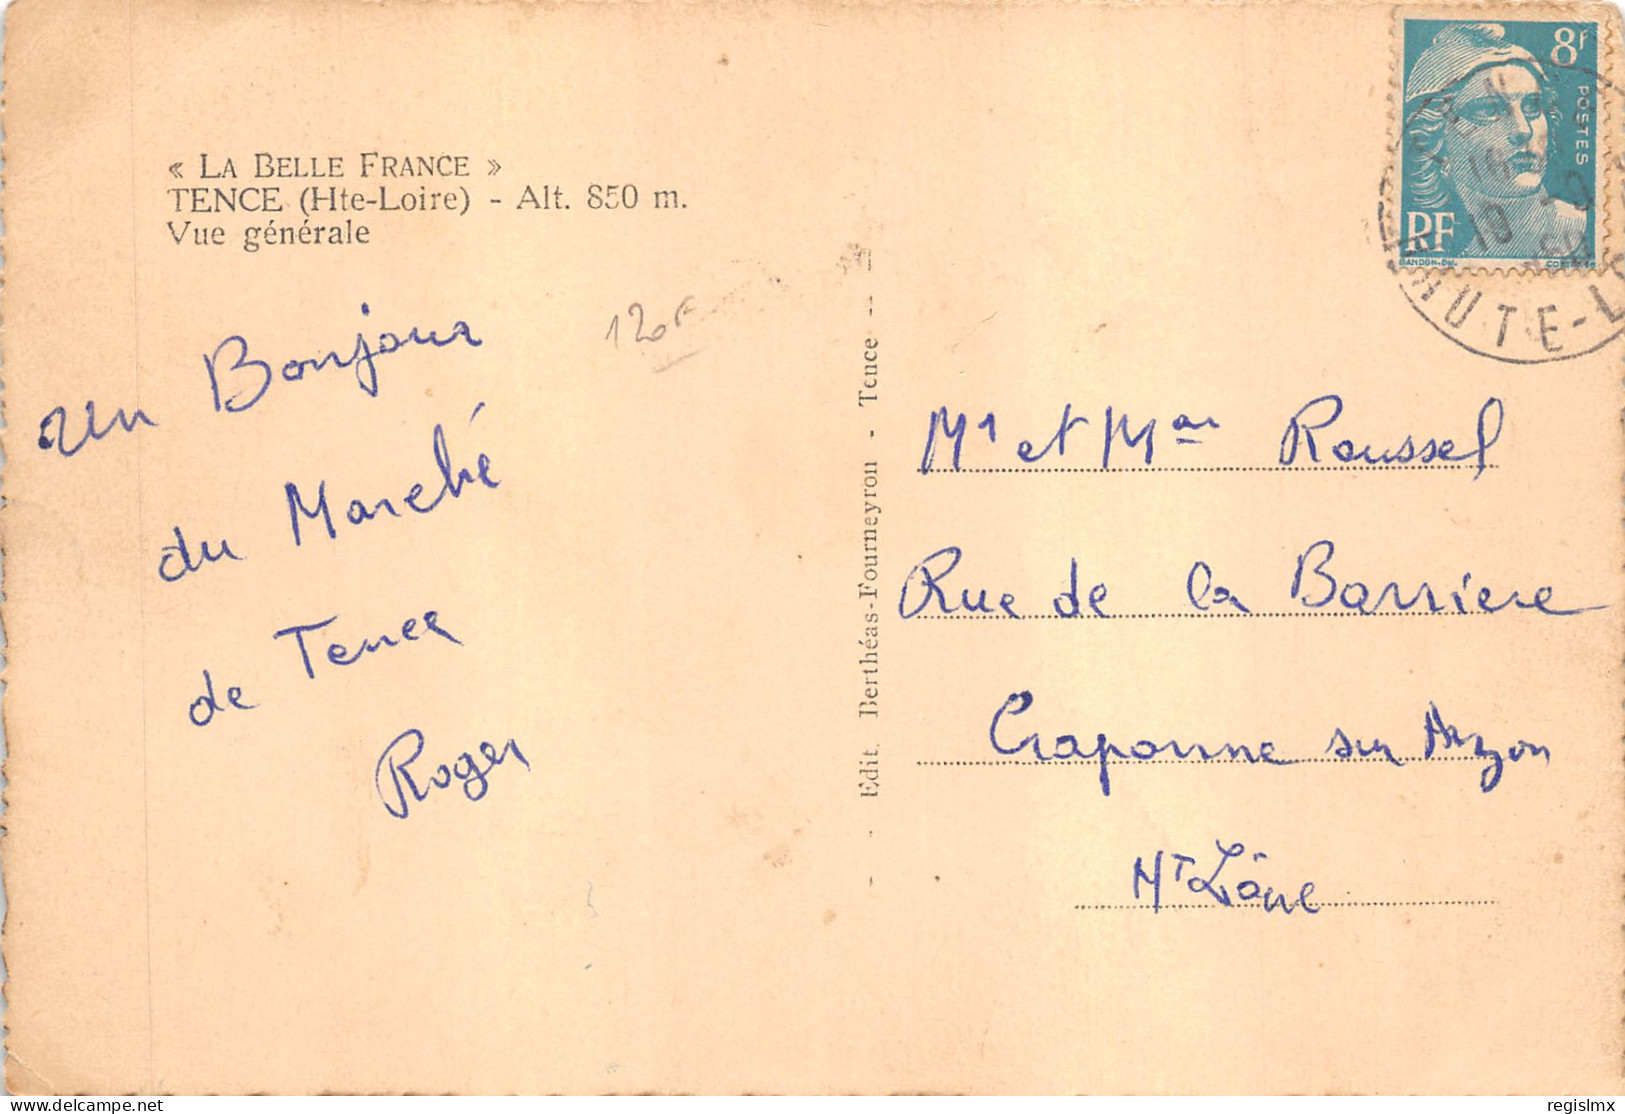 « LA BELLE FRANCE »
TENCE (Hte-Loire) - Alt. 850 m.
Vue générale
120F
un Bonjour
du Marché
de Tence
Roger
- Edit. Berthéas-Fourneyron - Tence --
8f
POSTES
RF
GANDON-Del.
HAUTE-L
Mr et Mme Roussel
Rue de la Barriere
Craponne sur Arzon
Hte Loire
delcampe.net
regislmx